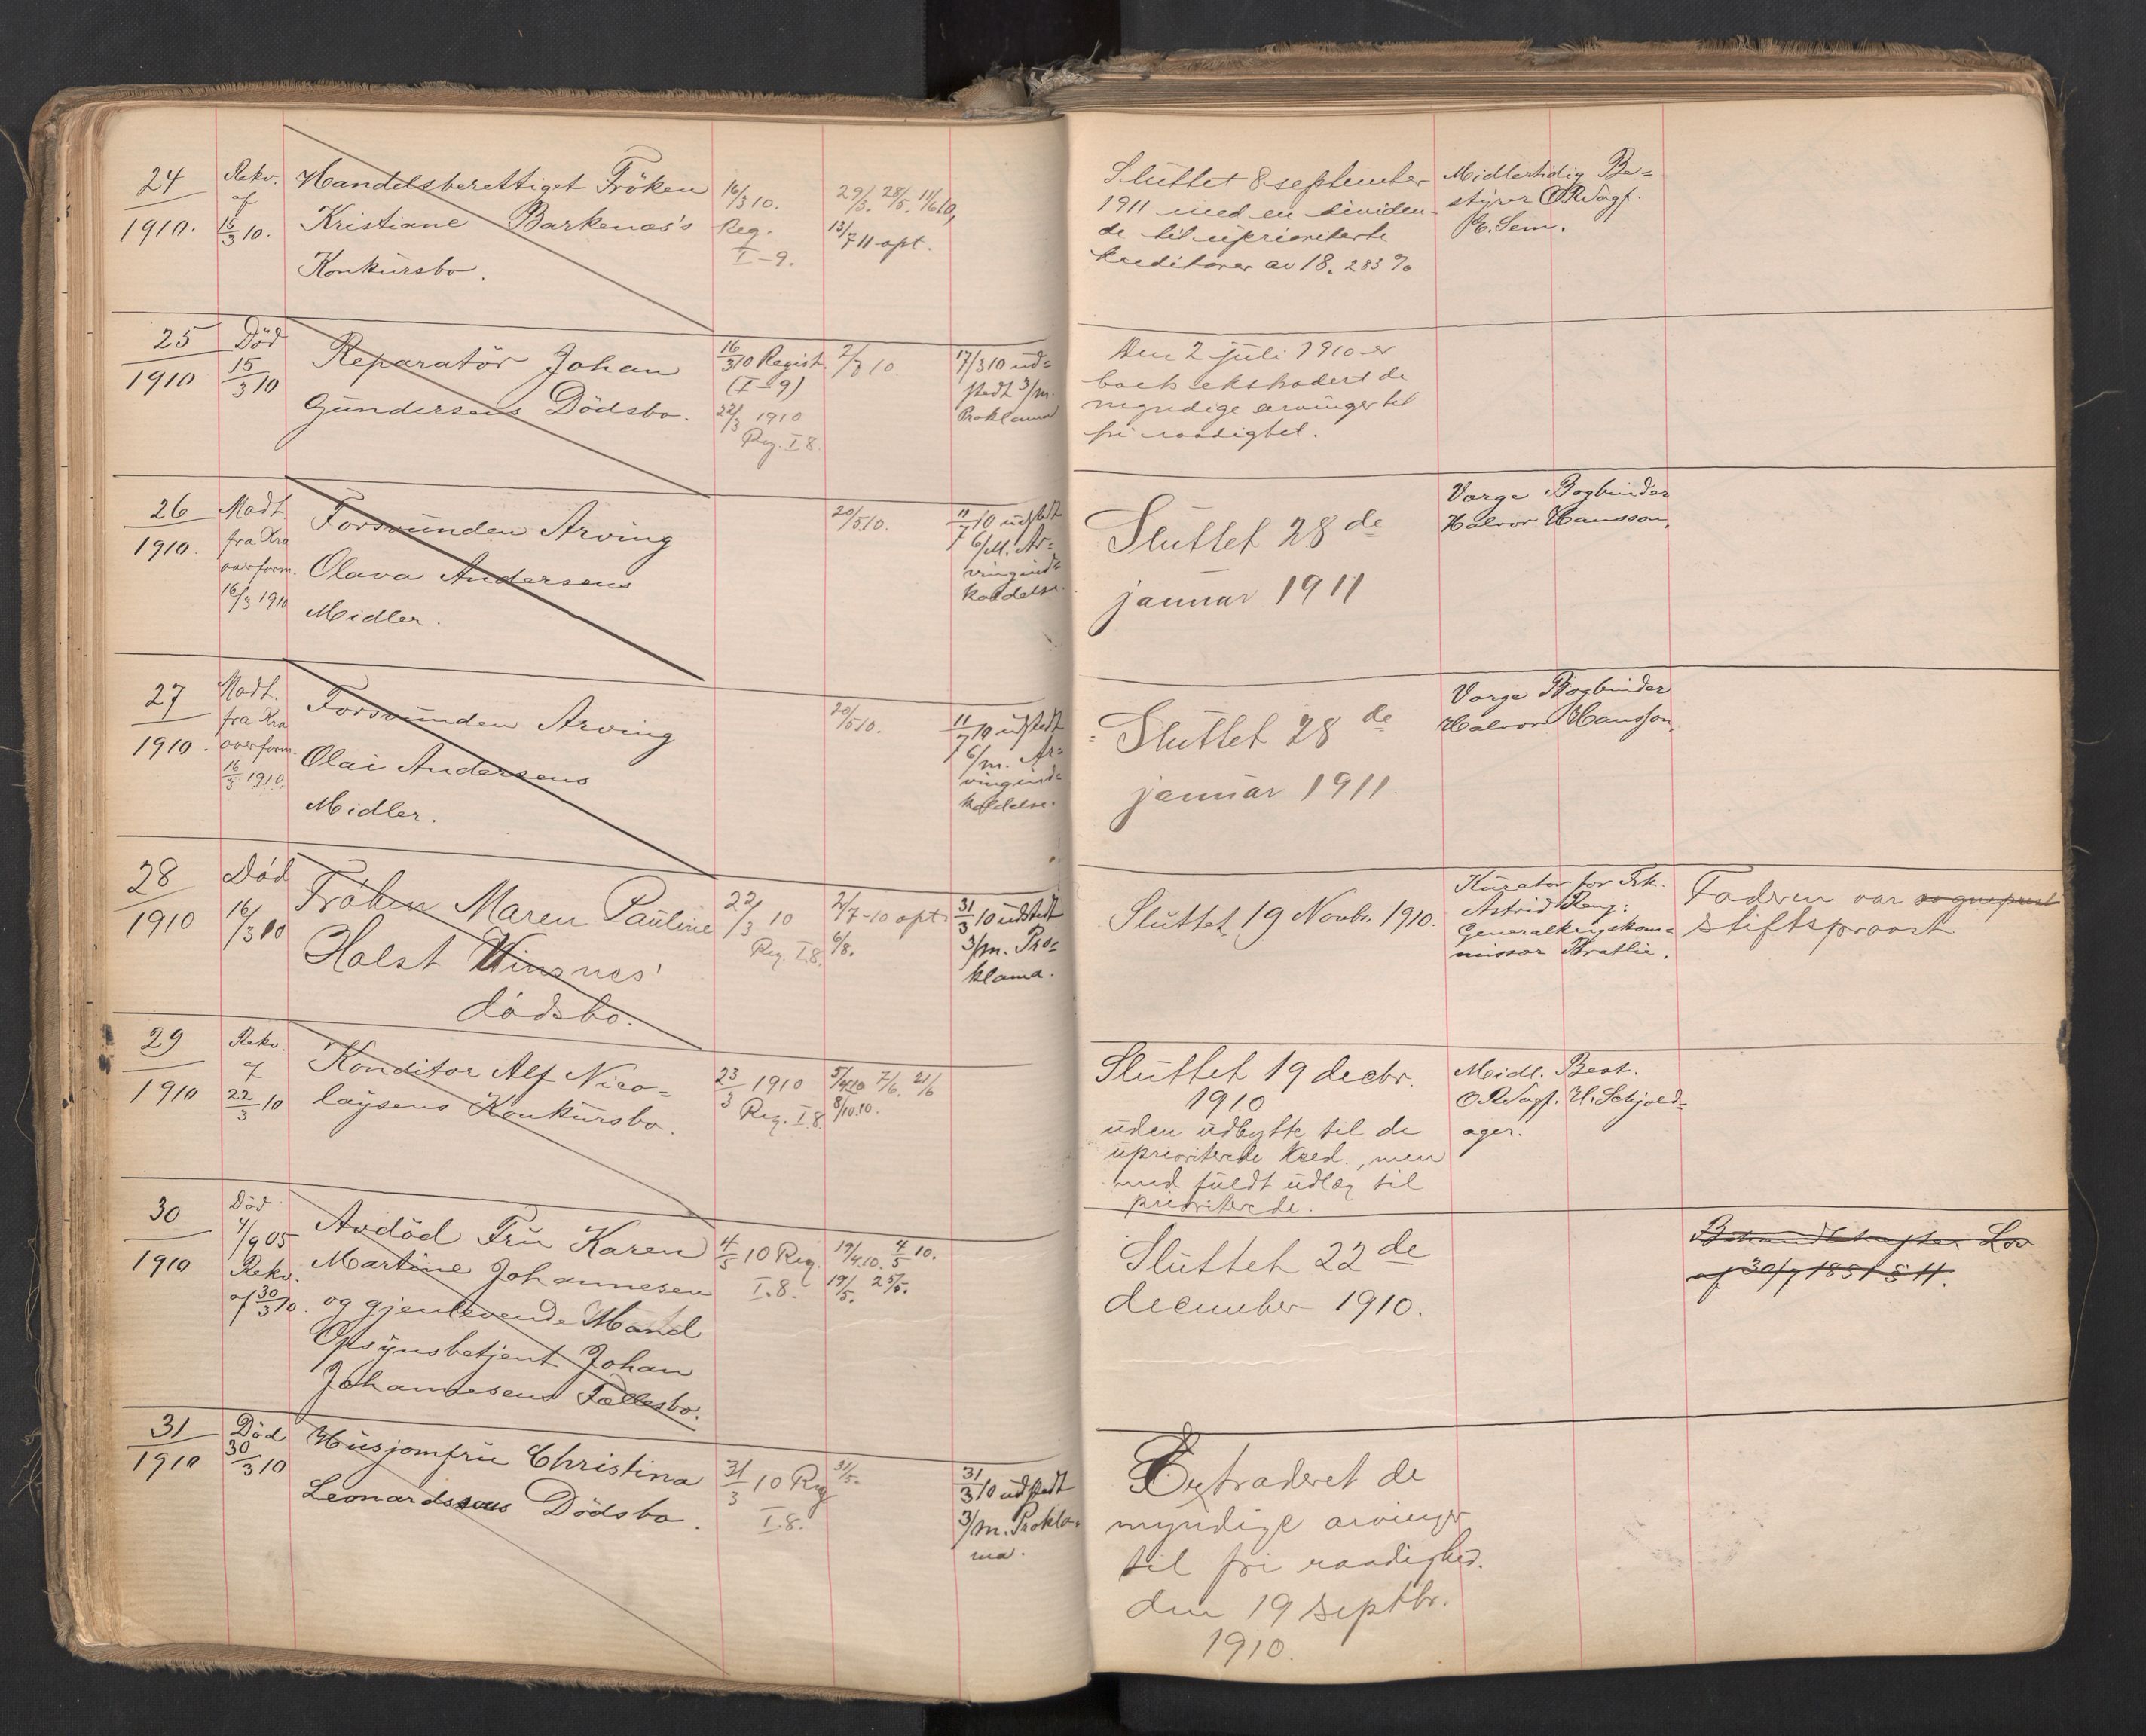 24
1910.
Rekv.
af
15/3 10.
Handelsberettiget Fröken
Kristiane Barkenæs's
Konkursbo.
16/3 10.
Reg.
I-9.
29/3. 28/5. 11/6 10,
13/7 11 opt.
Sluttet 8 september
1911 med en dividen-
de til uprioriterte
kreditorer av 18.283 %
Midlertidig Be=
styrer ORsagf.
E. Sem.
25
1910
Död
15/3 10
Reparatör Johan
Gundersens Dödsbo.
16/3 10 Regist.
(I-9)
22/3 1910
Reg. I 8.
2/7 10.
17/3 10 ud=
stedt 3/m.
Proklama
Den 2 juli 1910 er
boet ekstradert de
myndige arvinger til
fri raadighet.
26
1910.
Modt.
fra Kra
overform.
16/3 1910
Forsvunden Arving
Olava Andersens
Midler.
20/5 10.
11/7 10 udstedt
6/M. Ar=
vingind=
kaldelse.
Sluttet 28 de
januar 1911
Værge Bogbinder
Halvor Hansson.
27
1910.
Modt.
fra Kra
overform.
16/3 1910.
Forsvunden Arving
Olai Andersens
Midler.
20/5 10.
11/7 10 udstedt
6/m. Ar=
vingind=
kaldelse.
Sluttet 28 de
januar 1911.
Værge Bogbinder
Halvor Hansson.
28
1910
Död
16/3 10
Fröken Maren Pauline
Holst Wisnes'
dödsbo.
22/3 10
Reg. I.8.
2/7-10 opt.
6/8.
31/3 10 udstedt
3/m. Pro=
klama.
Sluttet 19 Novbr. 1910.
Kurator for Frk.
Astrid
Generalkrigskom=
missær Bratlie.
Faderen var sogneprest
stiftsproost
29
1910
Rekv.
af
22/3 10
Konditor Alf Nico=
laysens Konkursbo.
23/3 1910
Reg. I.8.
5/4 10 7/6. 21/6
8/10.10.
Sluttet 19 decbr.
1910
uden udbytte til de
uprioriterede kred., men
med fuldt udlæg til
prioriterede.
Midl. Best.
ORsagf. H. Schjold=
ager.
30
1910
Död
4/9 05
Rekv.
af 30/3 10.
Avdöd Fru Karen
Martine Johannesen
og gjenlevende Mand
Opsynsbetjent Johan
Johannesens Fællesbo.
4/5 10 Reg.
I.8.
19/4.10. 4/5 10.
19/5. 25/5.
Sluttet 22 de
december 1910.
Behandl efter Lov
af 30/7 1851 § 11.
31
1910
Död
30/3 10
Husjomfru Christina
Leonardssons Dödsbo.
31/3 10 Reg
I.8.
31/5.
31/3 10 udstedt
3/m. Prokla=
ma.
Extraderet de
myndige arvinger
til fri raadighed.
den 19 septbr.
1910.